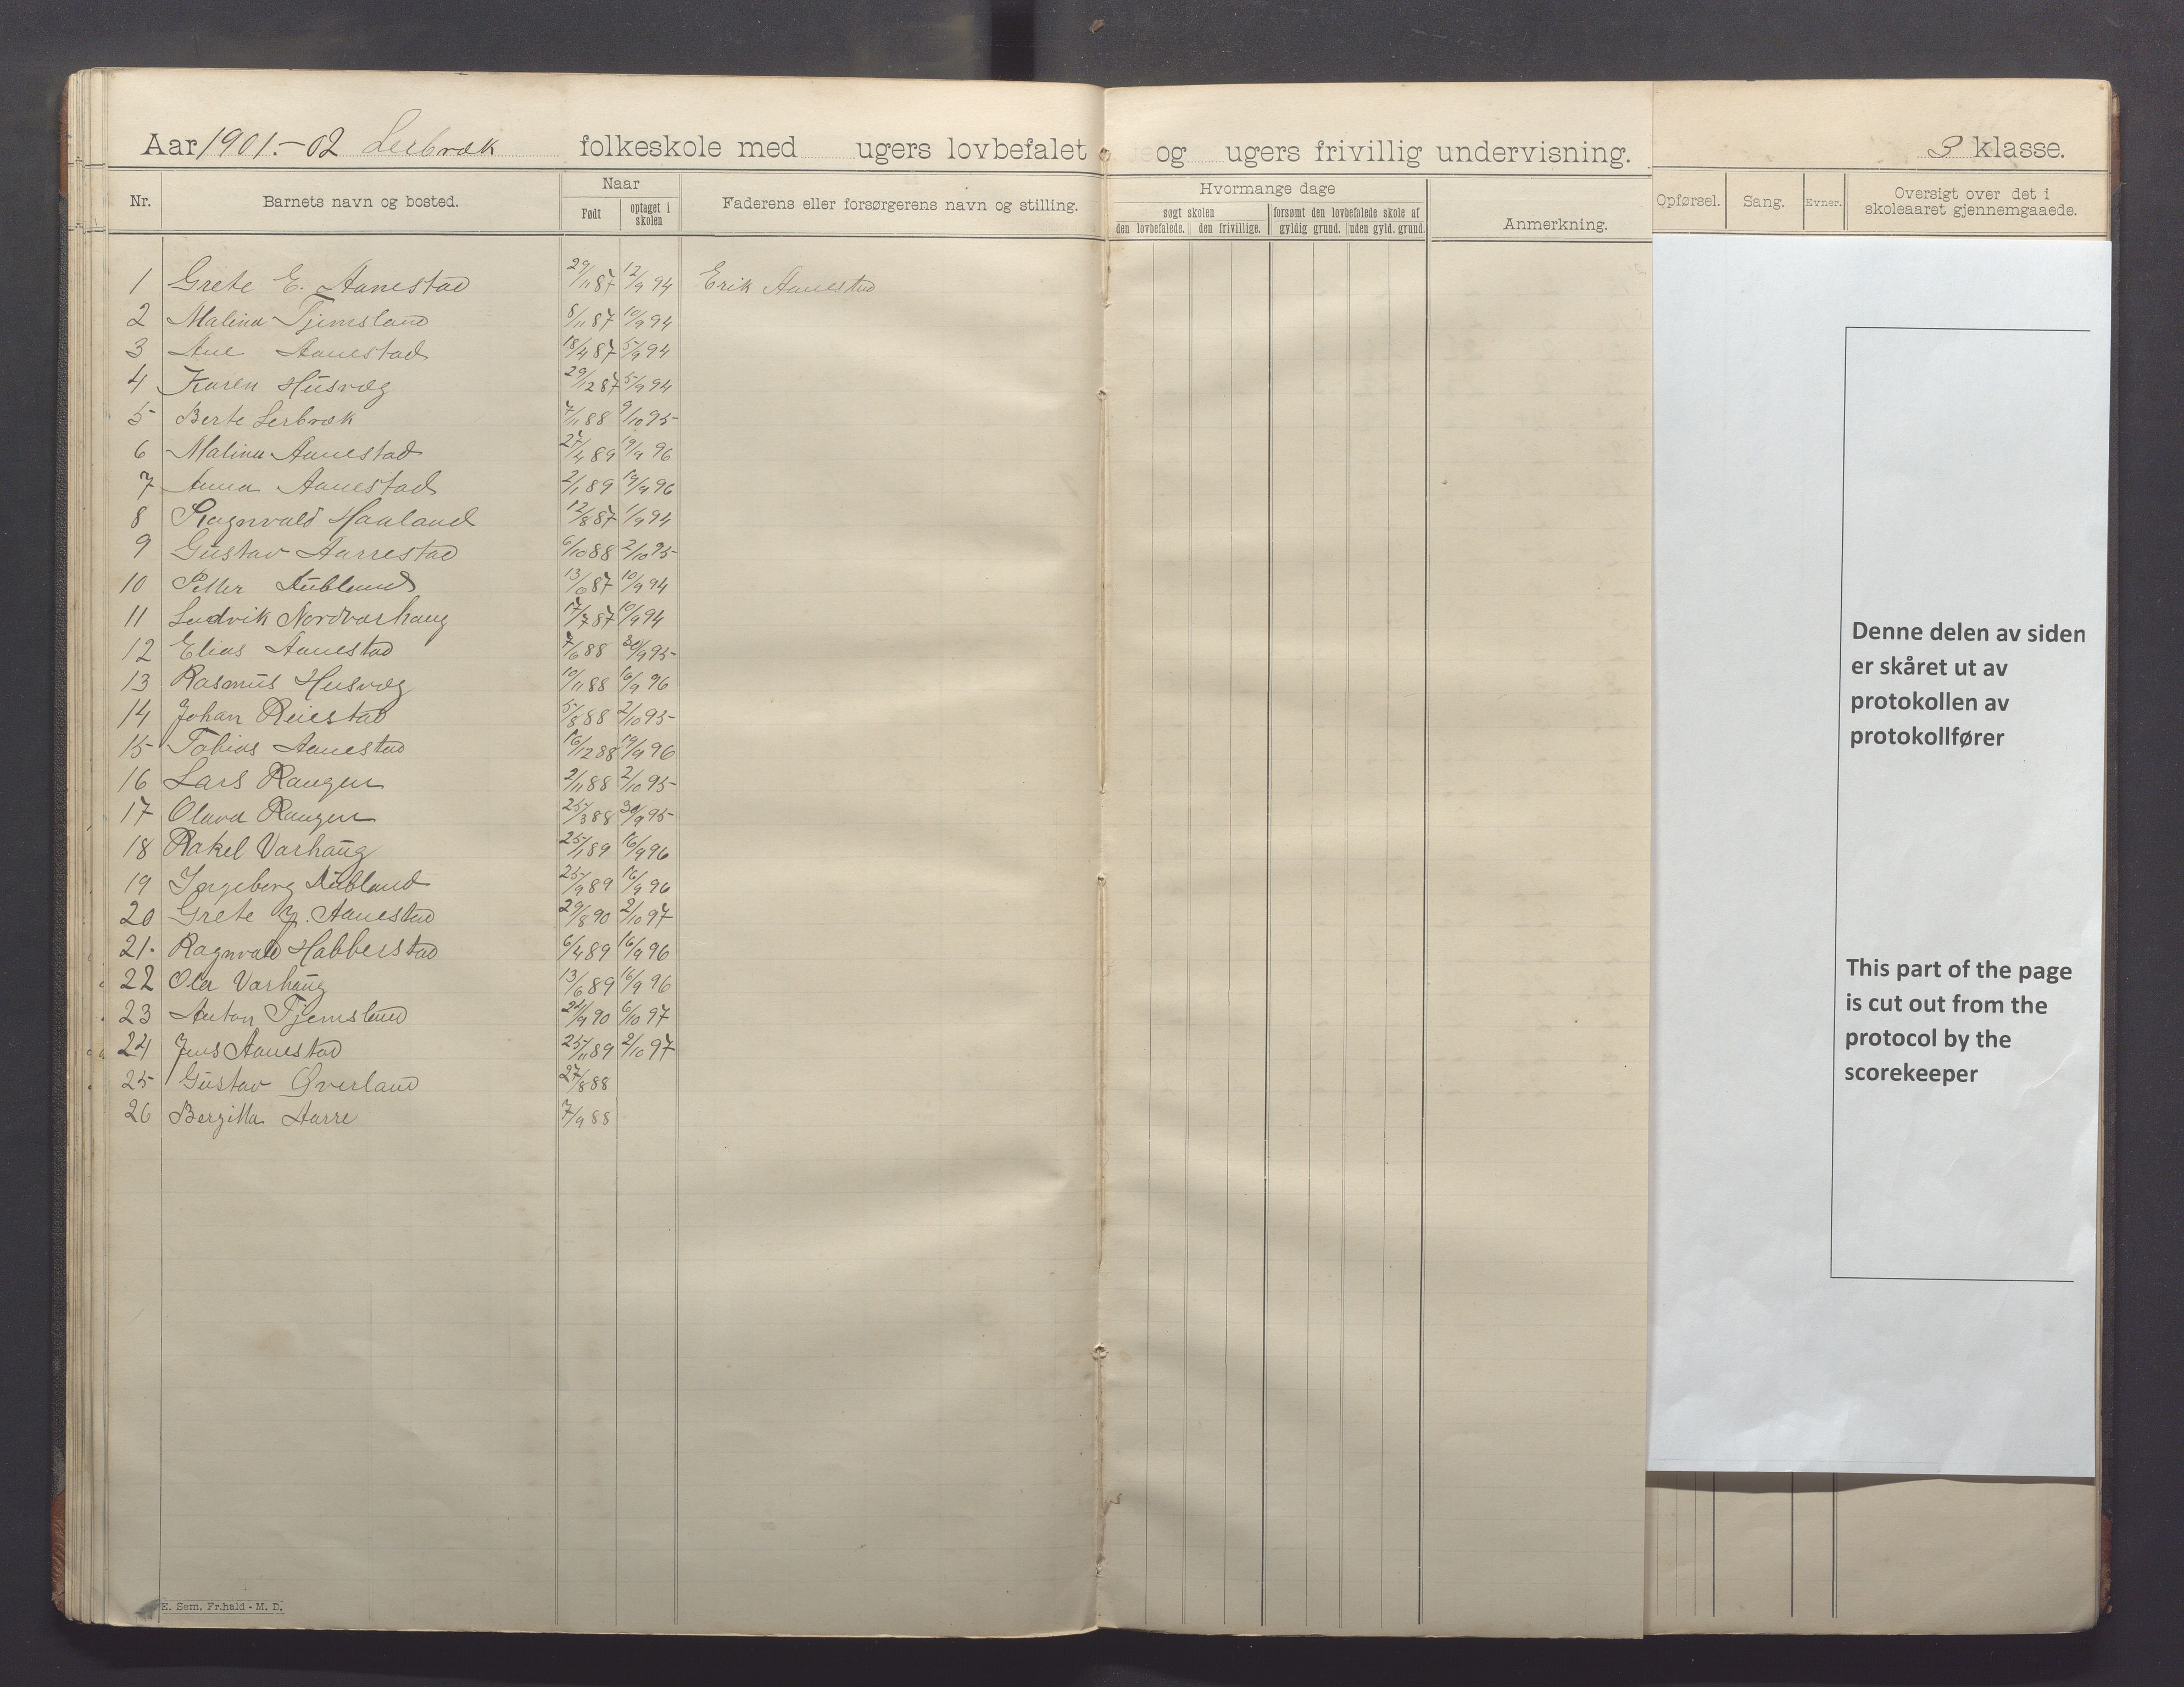 Aar 1901.-02 Lerbræk folkeskole med ugers lovbefalet og ugers frivillig undervisning. 3 klasse.
Nr. Barnets navn og bosted. Naar Født optaget i skolen Faderens eller forsørgerens navn og stilling. Hvormange dage søgt skolen den lovbefalede. den frivillige. forsømt den lovbefalede skole af gyldig grund. uden gyld. grund. Anmerkning. Opførsel. Sang. Evner. Oversigt over det i skoleaaret gjennemgaaede.
1 Grete E. Aanestad 29/11 87 12/9 94 Erik Aanestad
2 Malina Tjemsland 8/11 87 10/9 94
3 Ane Aanestad 18/4 87 5/9 94
4 Karen Husvæg 29/12 87 5/9 94
5 Berte Lerbræk 7/11 88 9/10 95
6 Malina Aanestad 27/4 89 19/9 96
7 Anna Aanestad 2/1 89 19/9 96
8 Ragnvald Haaland 12/8 87 1/9 94
9 Gustav Aarrestad 6/10 88 2/10 95
10 Petter Dubland 13/6 87 10/9 94
11 Ludvik Nordvarhaug 17/7 87 10/9 94
12 Elias Aanestad 7/6 88 30/9 95
13 Rasmus Husvæg 10/11 88 16/9 96
14 Johan Reiestad 5/8 88 2/10 95
15 Tobias Aanestad 16/12 88 19/9 96
16 Lars Raugen 2/11 88 2/10 95
17 Olava Raugen 25/3 88 30/9 95
18 Rakel Varhaug 25/1 89 16/9 96
19 Ingeborg Dubland 25/9 89 16/9 96
20 Grete J. Aanestad 29/8 90 2/10 97
21. Ragnvald Habberstad 6/4 89 16/9 96
22 Ola Varhaug 13/6 89 16/9 96
23 Anton Tjemsland 24/9 90 6/10 97
24 Jens Aanestad 25/11 89 2/10 97
25 Gustav Øverland 27/8 88
26 Bergitta Aarre 7/9 88
E. Sem. Fr.hald - M. D.
Denne delen av siden
er skåret ut av
protokollen av
protokollfører
This part of the page
is cut out from the
protocol by the
scorekeeper